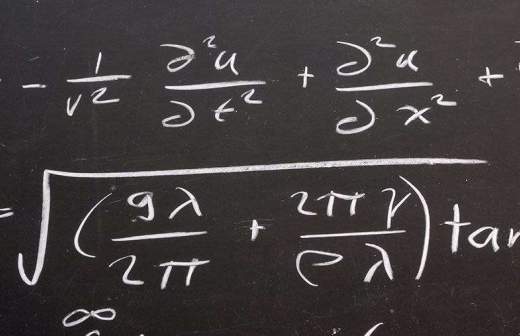 - 1/v² ∂²u/∂t² + ∂²u/∂x² +
= √(gλ/2π + 2πγ/ρλ) tan
∞